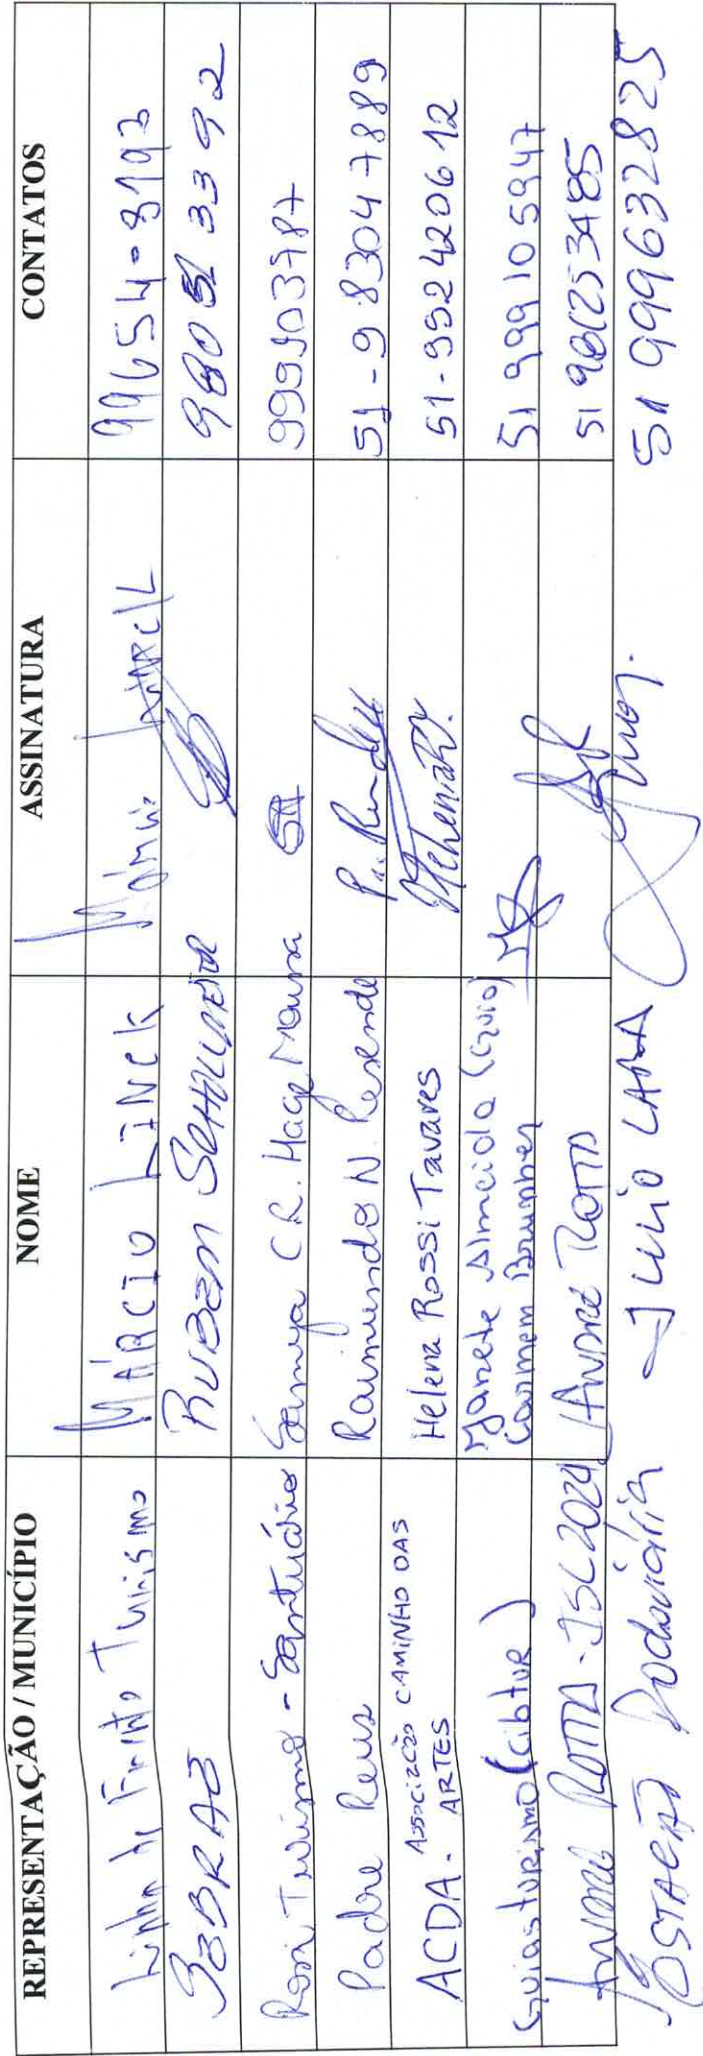 REPRESENTAÇÃO / MUNICÍPIO NOME ASSINATURA CONTATOS
Linha de Frente Turismo MÁRCIO LINCK Márcio 99654-8192
SEBRAE RUBEM 98051 3392
Rosi Turismo - Santuário Samya C.R. Hage Moura 999903787
Padre Reus Raimundo N. Resende 51-983047889
ACDA - Associação CAMINHO DAS ARTES Helena Rossi Tavares 51-992420612
Guias turismo (cibtur) Janete Almeida (Guia) 51 999105947
Carmem
ANDRÉ ROTTA - JSL 2024 ANDRÉ ROTTA 51
ESTAÇÃO Rodoviária JULIO LARA 51 999632825